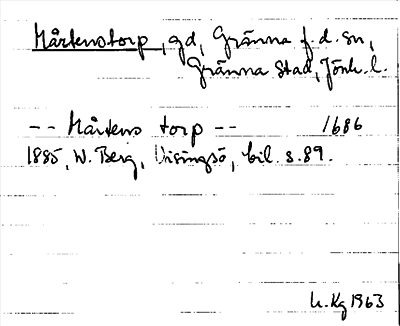 Mårtenstorp, gd, Gränna f.d. sn,
Gränna Stad, Jönk. l.
-- Mårtens torp -- 1686
1885, W. Berg, Visingsö, bil. s. 89.
Kg 1963